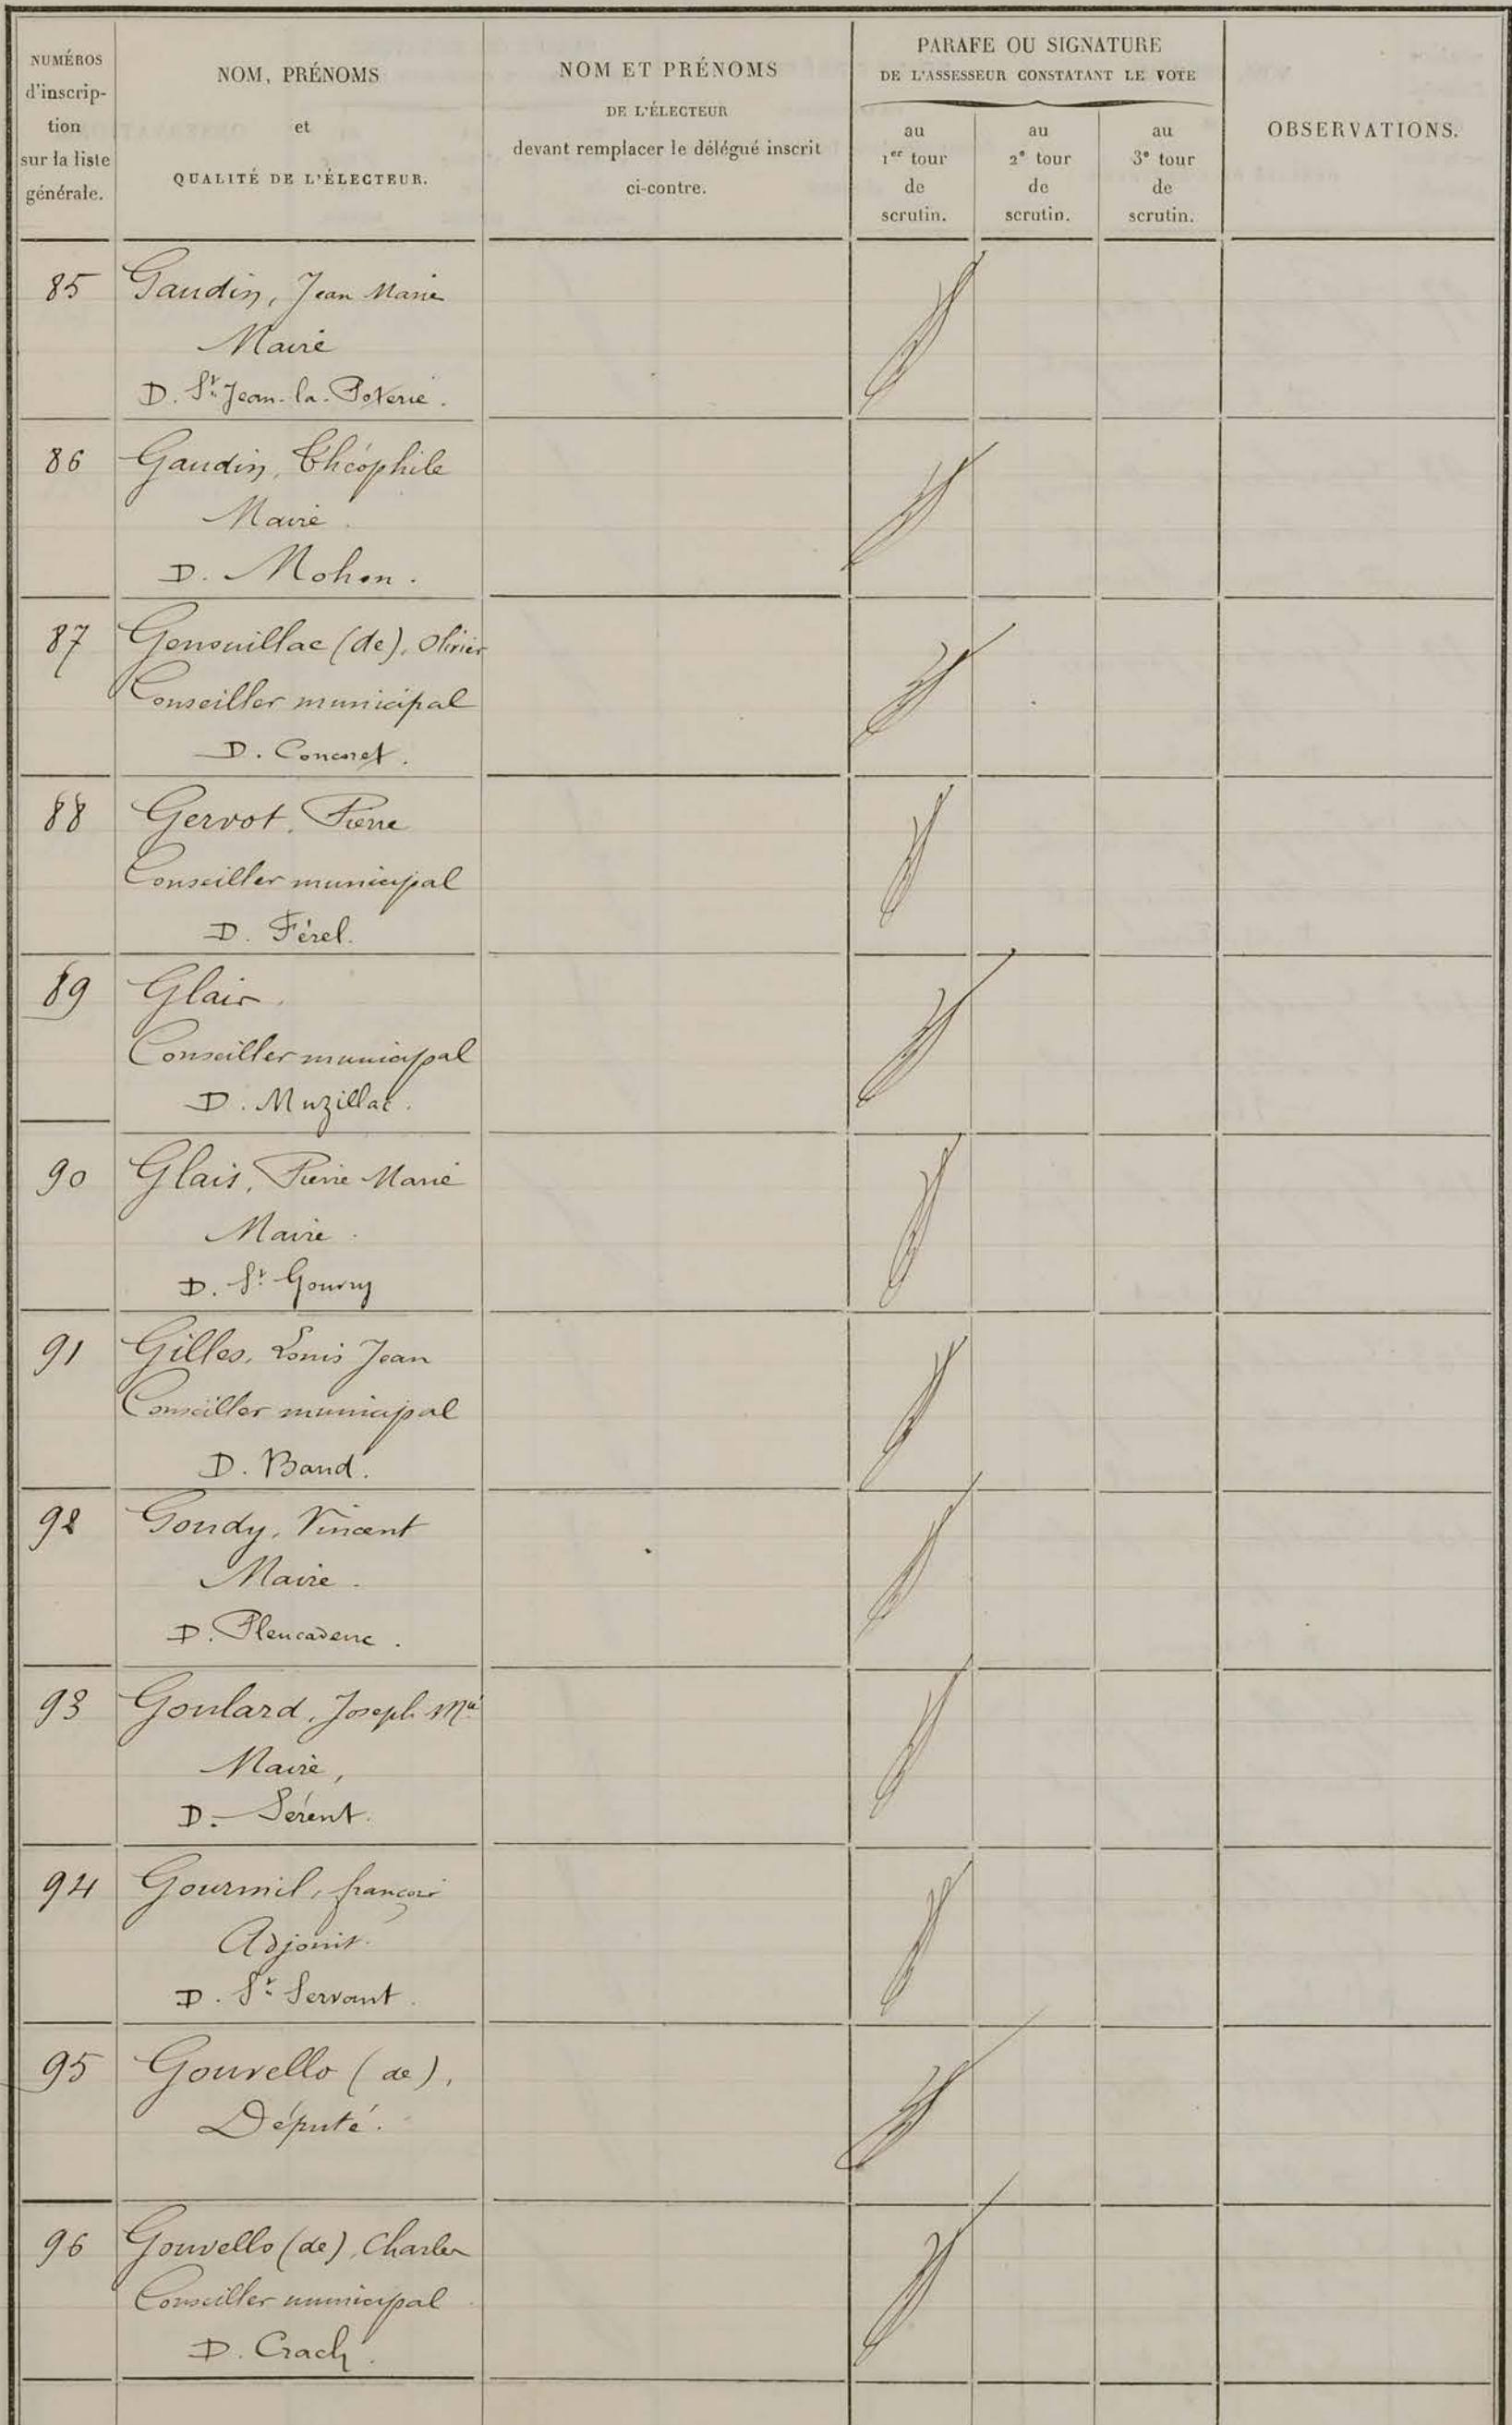 NUMÉROS
d'inscrip-
tion
sur la liste
générale.
NOM, PRÉNOMS
et
QUALITÉ DE L'ÉLECTEUR.
NOM ET PRÉNOMS
DE L'ÉLECTEUR
devant remplacer le délégué inscrit
ci-contre.
PARAFE OU SIGNATURE
DE L'ASSESSEUR CONSTATANT LE VOTE
au
1er tour
de
scrutin.
au
2e tour
de
scrutin.
au
3e tour
de
scrutin.
OBSERVATIONS.
85 Gaudin, Jean Marie
Maire
D. St. Jean-la-Poterie.
86 Gaudin, Théophile
Maire.
D. Mohon.
87 Genouillac (de), Olivier
Conseiller municipal
D. Concoret.
88 Gervot, Pierre
Conseiller municipal
D. Férel.
89 Glair.
Conseiller municipal
D. Muzillac.
90 Glais, Pierre Marie
Maire.
D. St. Gouvry
91 Gilles, Louis Jean
Conseiller municipal
D. Baud.
92 Goudy, Vincent
Maire.
D. Pleucadeuc.
93 Goulard, Joseph Mie
Maire,
D. Sérent.
94 Gourmil, françois
Adjoint.
D. St. Servant.
95 Gouvello (de),
Député.
96 Gouvello (de), Charles
Conseiller municipal
D. Crach.